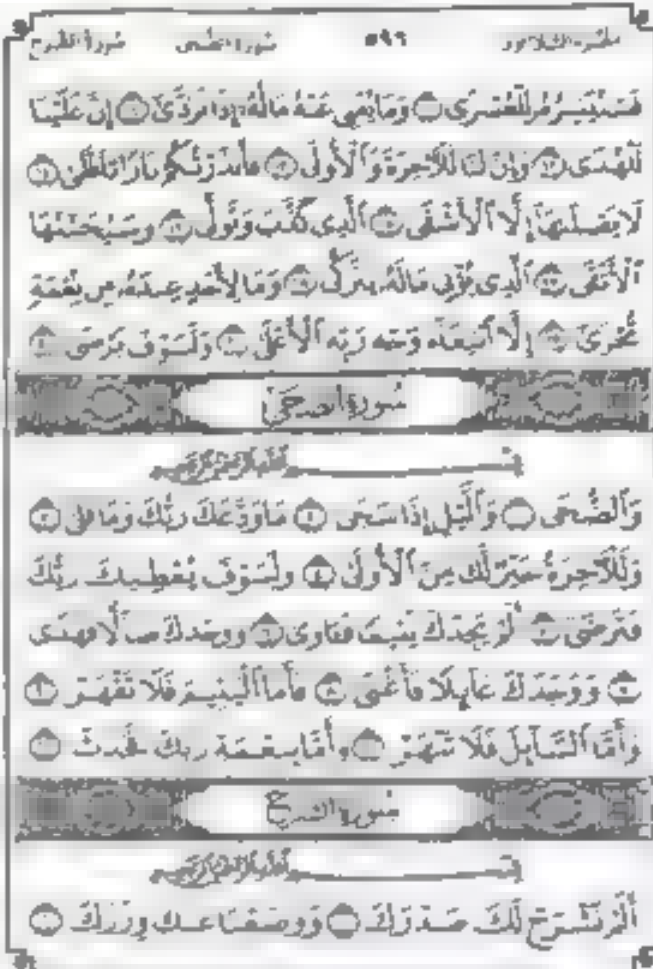 الجزء الثلاثون ٥٩٦ سورة الضحى سورة الشرح
فَسَنُيَسِّرُهُ لِلْعُسْرَىٰ ۝١٠ وَمَا يُغْنِي عَنْهُ مَالُهُ إِذَا تَرَدَّىٰ ۝١١ إِنَّ عَلَيْنَا
لَلْهُدَىٰ ۝١٢ وَإِنَّ لَنَا لَلْآخِرَةَ وَالْأُولَىٰ ۝١٣ فَأَنذَرْتُكُمْ نَارًا تَلَظَّىٰ ۝١٤
لَا يَصْلَاهَا إِلَّا الْأَشْقَى ۝١٥ الَّذِي كَذَّبَ وَتَوَلَّىٰ ۝١٦ وَسَيُجَنَّبُهَا
الْأَتْقَى ۝١٧ الَّذِي يُؤْتِي مَالَهُ يَتَزَكَّىٰ ۝١٨ وَمَا لِأَحَدٍ عِندَهُ مِن نِّعْمَةٍ
تُجْزَىٰ ۝١٩ إِلَّا ابْتِغَاءَ وَجْهِ رَبِّهِ الْأَعْلَىٰ ۝٢٠ وَلَسَوْفَ يَرْضَىٰ ۝٢١
سورة الضحى
بسم الله الرحمن الرحيم
وَالضُّحَىٰ ۝١ وَاللَّيْلِ إِذَا سَجَىٰ ۝٢ مَا وَدَّعَكَ رَبُّكَ وَمَا قَلَىٰ ۝٣
وَلَلْآخِرَةُ خَيْرٌ لَّكَ مِنَ الْأُولَىٰ ۝٤ وَلَسَوْفَ يُعْطِيكَ رَبُّكَ
فَتَرْضَىٰ ۝٥ أَلَمْ يَجِدْكَ يَتِيمًا فَآوَىٰ ۝٦ وَوَجَدَكَ ضَالًّا فَهَدَىٰ
۝٧ وَوَجَدَكَ عَائِلًا فَأَغْنَىٰ ۝٨ فَأَمَّا الْيَتِيمَ فَلَا تَقْهَرْ ۝٩
وَأَمَّا السَّائِلَ فَلَا تَنْهَرْ ۝١٠ وَأَمَّا بِنِعْمَةِ رَبِّكَ فَحَدِّثْ ۝١١
سورة الشرح
بسم الله الرحمن الرحيم
أَلَمْ نَشْرَحْ لَكَ صَدْرَكَ ۝١ وَوَضَعْنَا عَنكَ وِزْرَكَ ۝٢